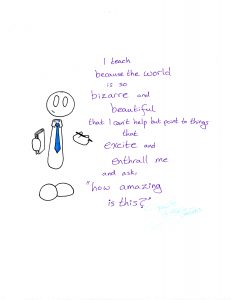 I teach
because the world
is so
bizarre and
beautiful
that I can't help but point to things
that
excite and
enthrall me
and ask,
"how amazing
is this?"